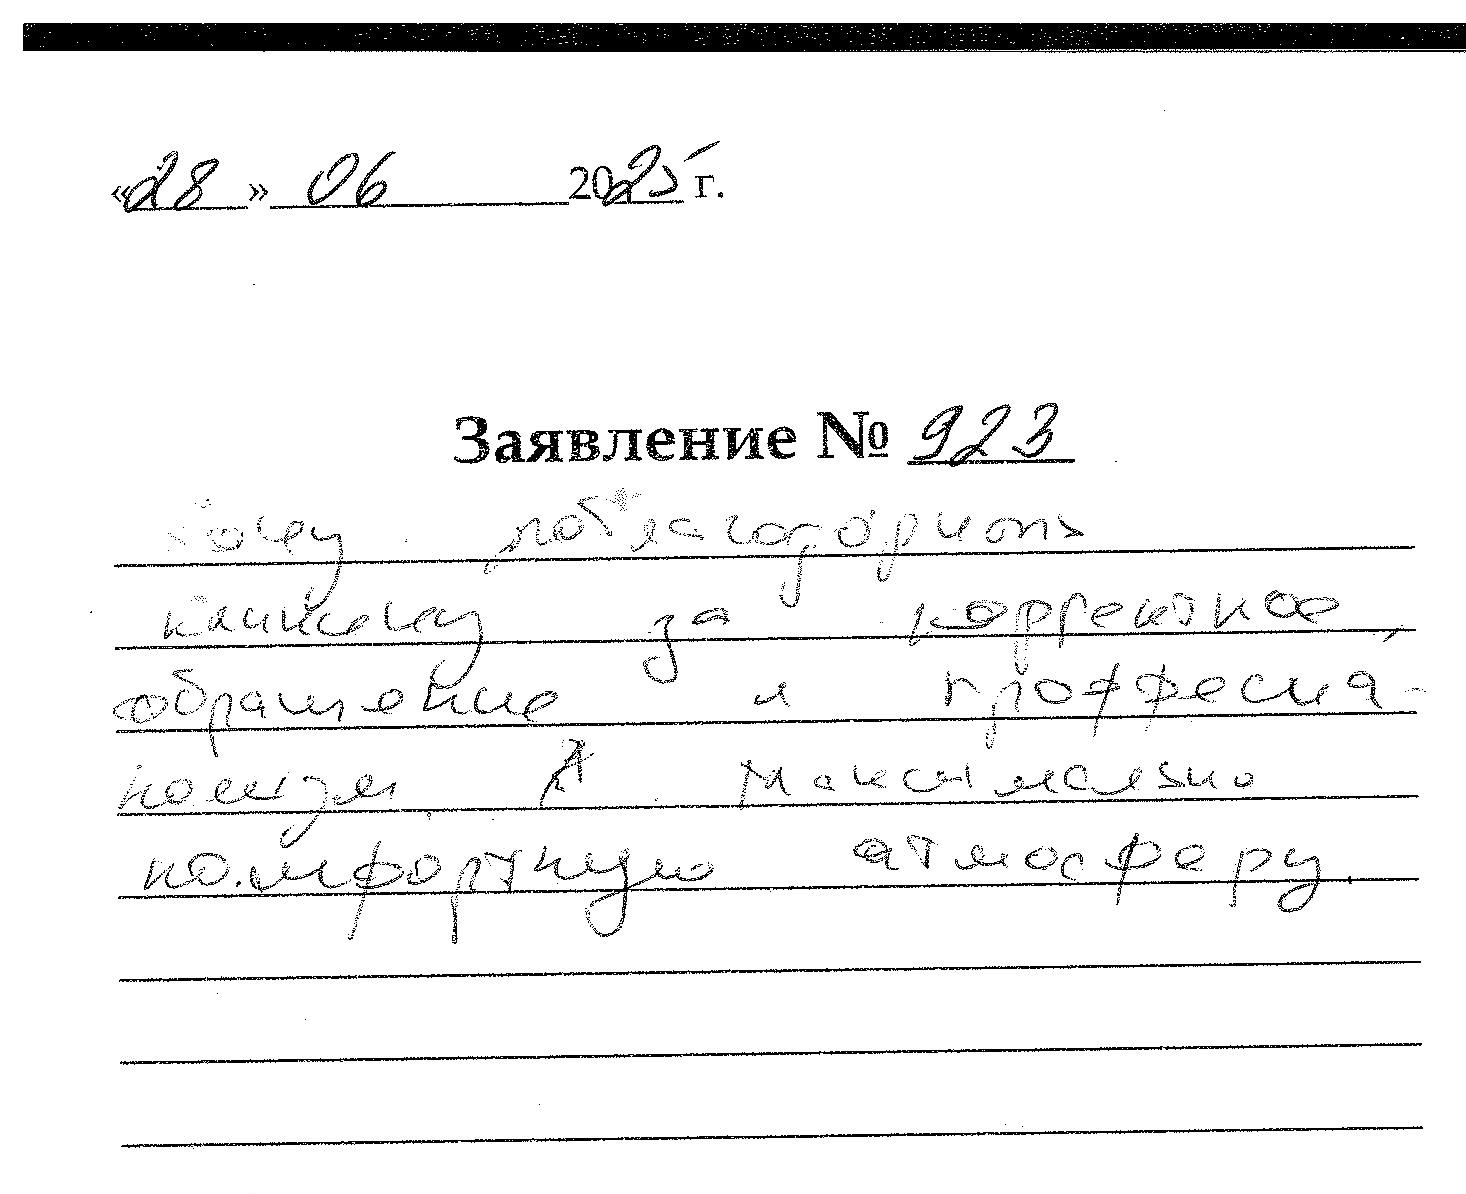 «28» 06 2025 г.
Заявление № 923
Хочу поблагодорить
клинику за корректное,
обращение и проффесиа-
нолизм. А максимально
комфортную атмосферу.